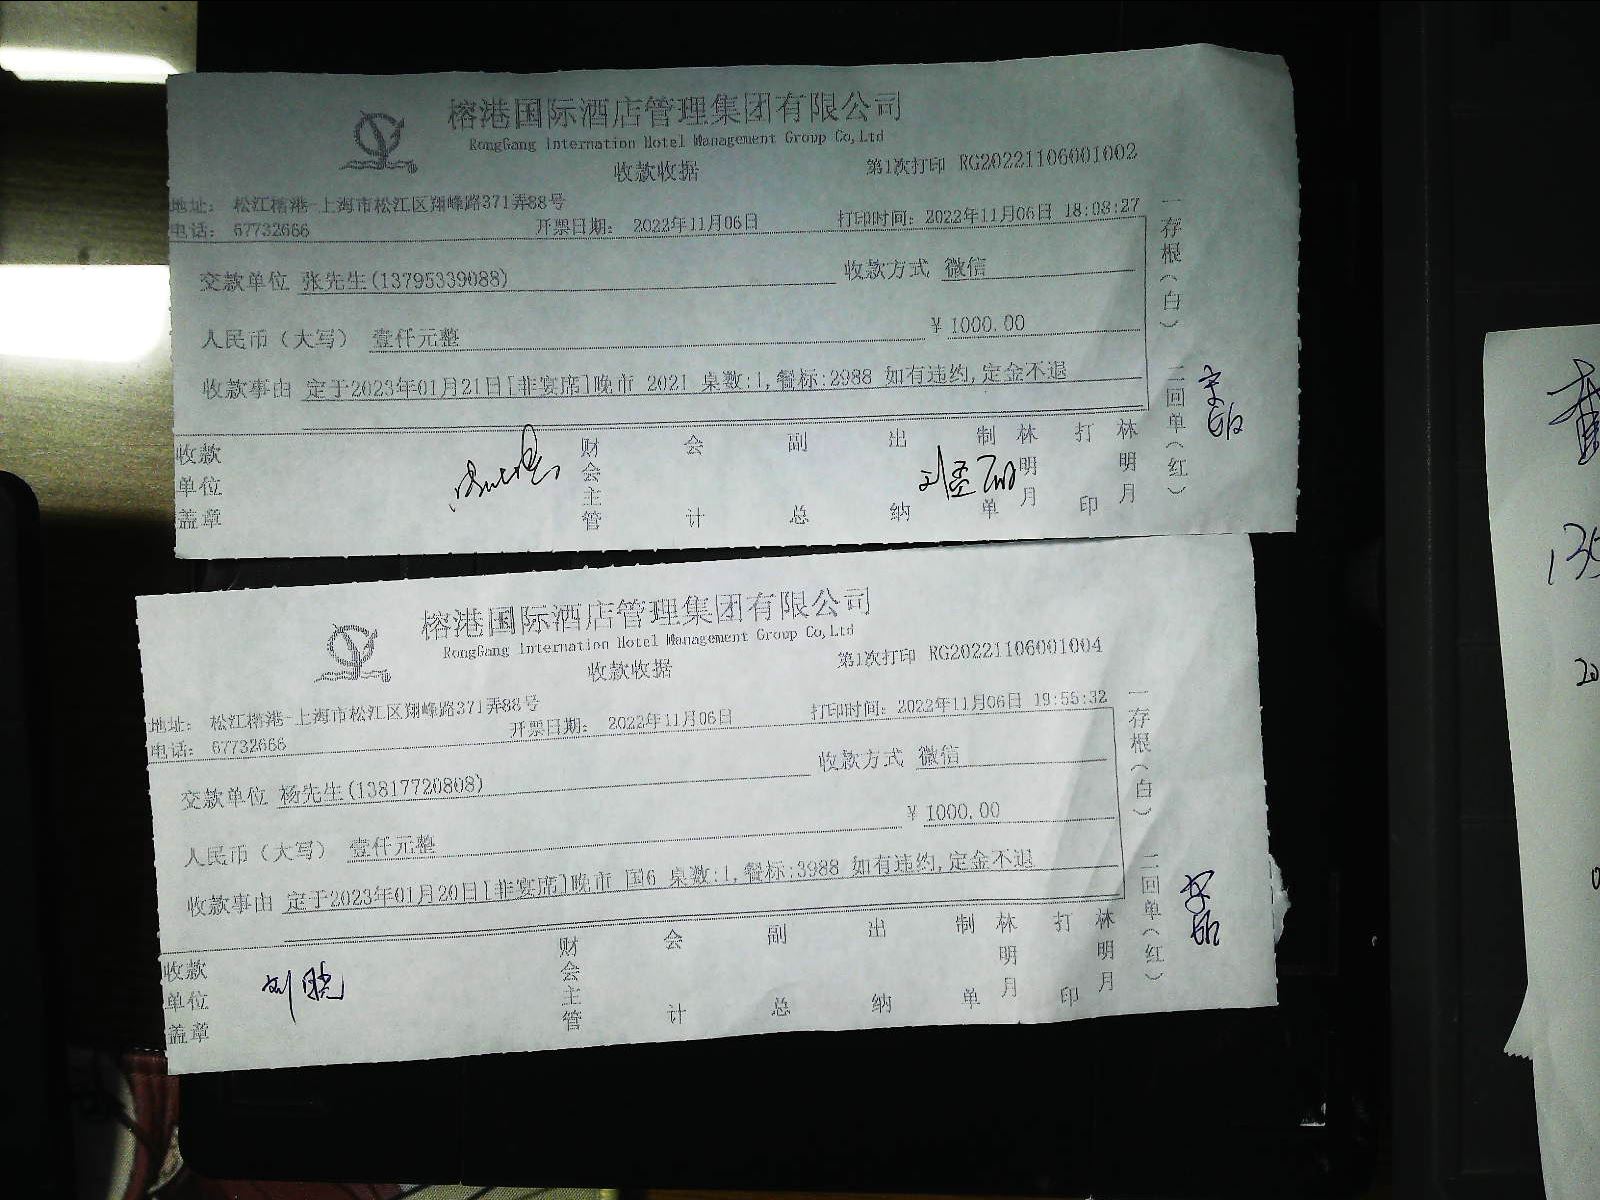 榕港国际酒店管理集团有限公司
RongGang Internation Hotel Management Group Co,Ltd
收款收据
第1次打印 RG20221106001002
地址： 松江榕港-上海市松江区翔峰路371弄88号
电话： 67732666
开票日期： 2022年11月06日
打印时间：2022年11月06日 18:08:27
交款单位 张先生(13795339088)
收款方式 微信
人民币（大写） 壹仟元整
￥1000.00
收款事由 定于2023年01月21日[非宴席]晚市 2021 桌数:1,餐标:2988 如有违约,定金不退
收款单位盖章
财会主管
会计
副总
出纳
制单
林明月
打印
林明月
一存根（白）
二回单（红）
榕港国际酒店管理集团有限公司
RongGang Internation Hotel Management Group Co,Ltd
收款收据
第1次打印 RG20221106001004
地址： 松江榕港-上海市松江区翔峰路371弄88号
电话： 67732666
开票日期： 2022年11月06日
打印时间：2022年11月06日 19:55:32
交款单位 杨先生(13817720808)
收款方式 微信
人民币（大写） 壹仟元整
￥1000.00
收款事由 定于2023年01月20日[非宴席]晚市 国6 桌数:1,餐标:3988 如有违约,定金不退
收款单位盖章
刘晓
财会主管
会计
副总
出纳
制单
林明月
打印
林明月
一存根（白）
二回单（红）